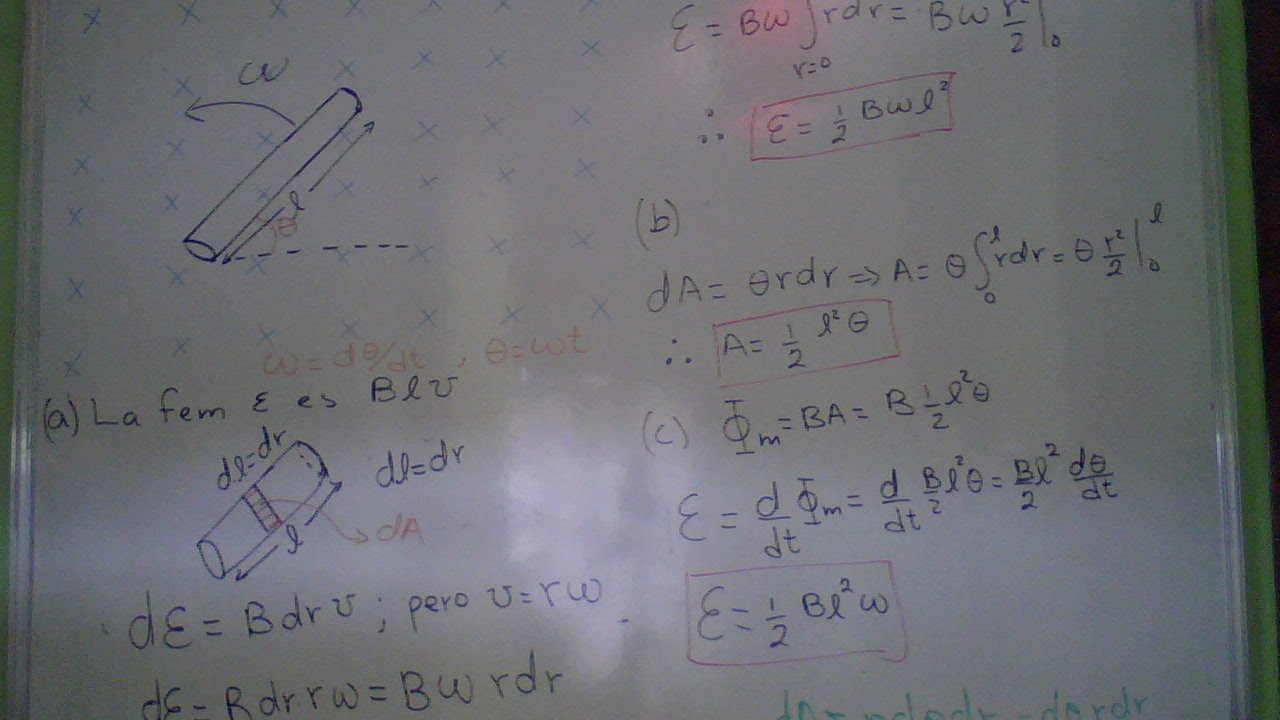 ω
l
θ
ω = dθ/dt ; θ = ωt
(a) La fem ε es Blv
dl = dr
dl = dr
dA
l
dε = B dr v ; pero v = rω
dε = B dr rω = Bω r dr
ε = Bω ∫ r dr = Bω r²/2 |₀
r=0
∴ ε = 1/2 Bωl²
(b)
dA = θ r dr ⇒ A = θ ∫₀ˡ r dr = θ r²/2 |₀ˡ
∴ A = 1/2 l²θ
(c) Φm = BA = B 1/2 l²θ
ε = d/dt Φm = d/dt B/2 l²θ = B/2 l² dθ/dt
ε = 1/2 Bl²ω